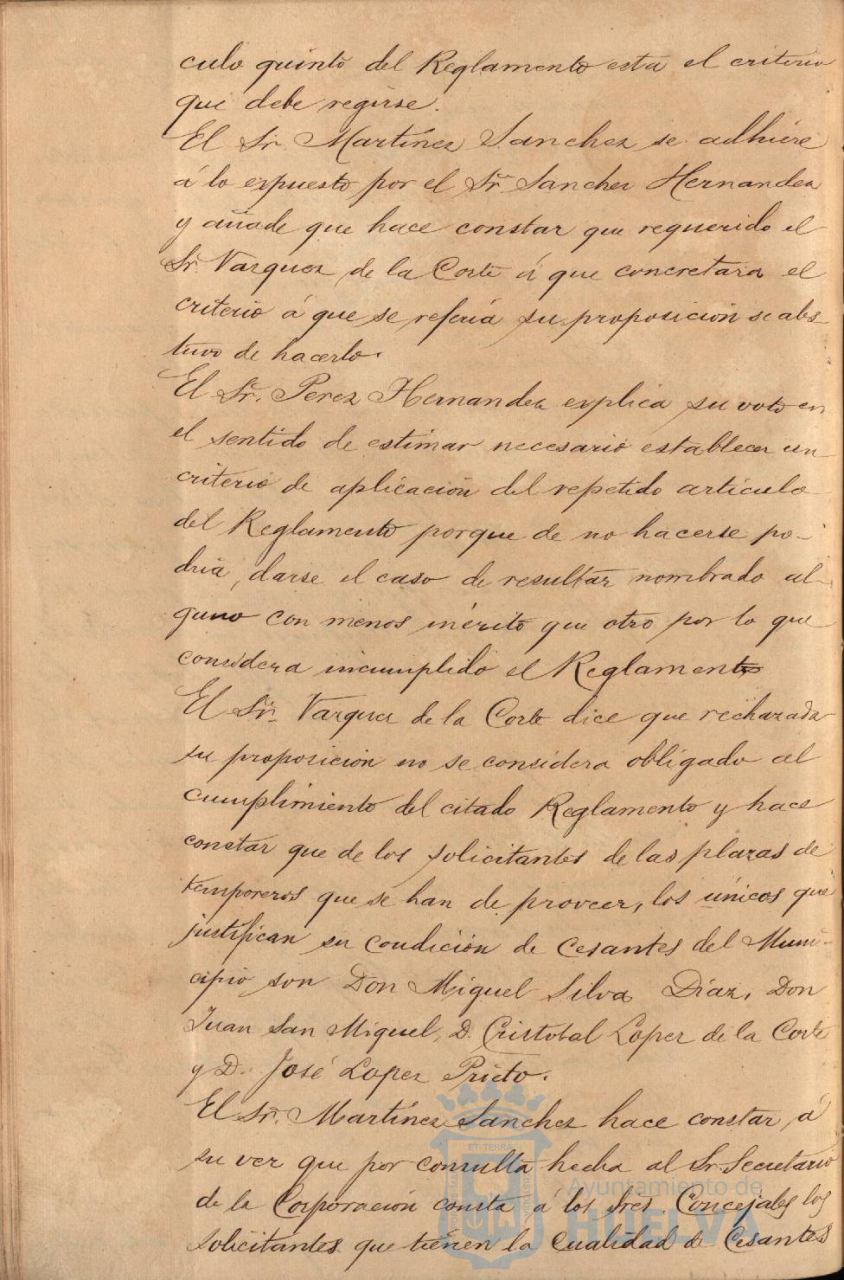 culo quinto del Reglamento esta el criterio
que debe regirse.
El Sr. Martínez Sanchez se adhiere
á lo expuesto por el Sr. Sanchez Hernandez
y añade que hace constar que requerido el
Sr. Vazquez de la Corte á que concretara el
criterio á que se referia su proposición se abs-
tuvo de hacerlo.
El Sr. Perez Hernandez explica su voto en
el sentido de estimar necesario establecer un
criterio de aplicación del repetido articulo
del Reglamento porque de no hacerse po-
dria, darse el caso de resultar nombrado al-
guno con menos mérito que otro por lo que
considera incumplido el Reglamento
El Sr. Vazquez de la Corte dice que rechazada
su proposición no se considera obligado al
cumplimiento del citado Reglamento y hace
constar que de los solicitantes de las plazas de
temporeros que se han de proveer, los únicos que
justifican su condición de cesantes del Muni-
cipio son Don Miguel Silva Díaz, Don
Juan San Miguel, D. Cristobal Lopez de la Corte
y D. José Lopez Prieto.
El Sr. Martínez Sanchez hace constar á
su vez que por consulta hecha al Sr. Secretario
de la Corporación consta á los Sres. Concejales los
solicitantes que tienen la cualidad de Cesantes
Ayuntamiento de
HUELVA